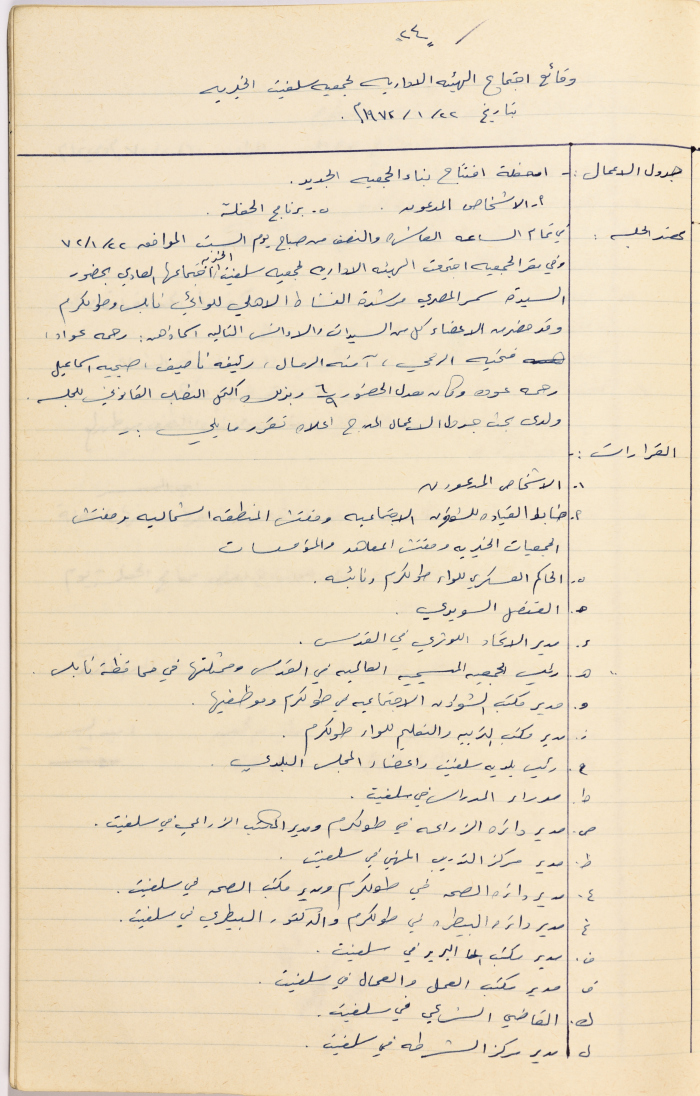 ـ ٢٤ ـ
وقائع اجتماع الهيئه الاداريه لجمعيه سلفيت الخيريه
بتاريخ ٢٢ / ١ / ١٩٧٢م .
جدول الاعمال :- ١. حفلة افتتاح بناء الجمعيه الجديد .
أ. الاشخاص المدعون . ب. برنامج الحفلة .
تعقد الجلسه : في تمام الساعه العاشره والنصف من صباح يوم السبت الموافقه ٧٢/١/٢٢
وفي مقر الجمعيه اجتمعت الهيئه الاداريه لجمعيه سلفيت الخيريه اجتماعها العادي بحضور
السيدة سمر المصري مرشدة النشاط الاهلي للوائي نابلس وطولكرم
وقد حضر من الاعضاء كل من السيدات والاوانس التاليه اسماؤهن : رحمه عواد ،
فتحيه الزعبي ، آمنه الرمال ، رئيفه ناصيف ، صبحيه اسماعيل
رحمه عوده وكان معدل الحضور ٦/٩ وبذلك اكتمل النصاب القانوني للجلسه .
ولدى بحث جدول الاعمال المدرج اعلاه تقرر ما يلي :-
القرارات :-
١. الاشخاص المدعوون
أ. ضابط القياده للشؤون الاجتماعيه ومفتش المنطقه الشماليه ومفتش
الجمعيات الخيريه ومفتش المعاهد والمؤسسات
ب. الحاكم العسكري للواء طولكرم ونائبه .
ج. القنصل السويدي .
د. مدير الاتحاد اللوثري في القدس .
هـ. رئيس الجمعيه المسيحيه العالميه في القدس وممثلتها في محافظة نابلس .
و. مدير مكتب الشؤون الاجتماعيه في طولكرم وموظفيها .
ز. مدير مكتب التربيه والتعليم للواء طولكرم .
ح. رئيس بلديه سلفيت واعضاء المجلس البلدي .
ط. مدراء المدارس في سلفيت .
ص. مدير دائره الزراعه في طولكرم ومدير المكتب الزراعي في سلفيت .
ط. مدير مركز التدريب المهني في سلفيت .
ع. مدير دائره الصحه في طولكرم ومدير مكتب الصحه في سلفيت .
غ. مدير دائره البيطره في طولكرم والدكتور البيطري في سلفيت .
ف. مدير مكتب البريد في سلفيت .
ق. مدير مكتب العمل والعمال في سلفيت .
ك. القاضي الشرعي في سلفيت .
ل. مدير مركز الشرطه في سلفيت .